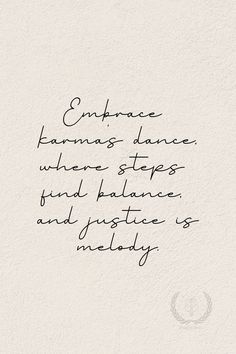 Embrace
karma's dance,
where steps
find balance,
and justice is
melody.